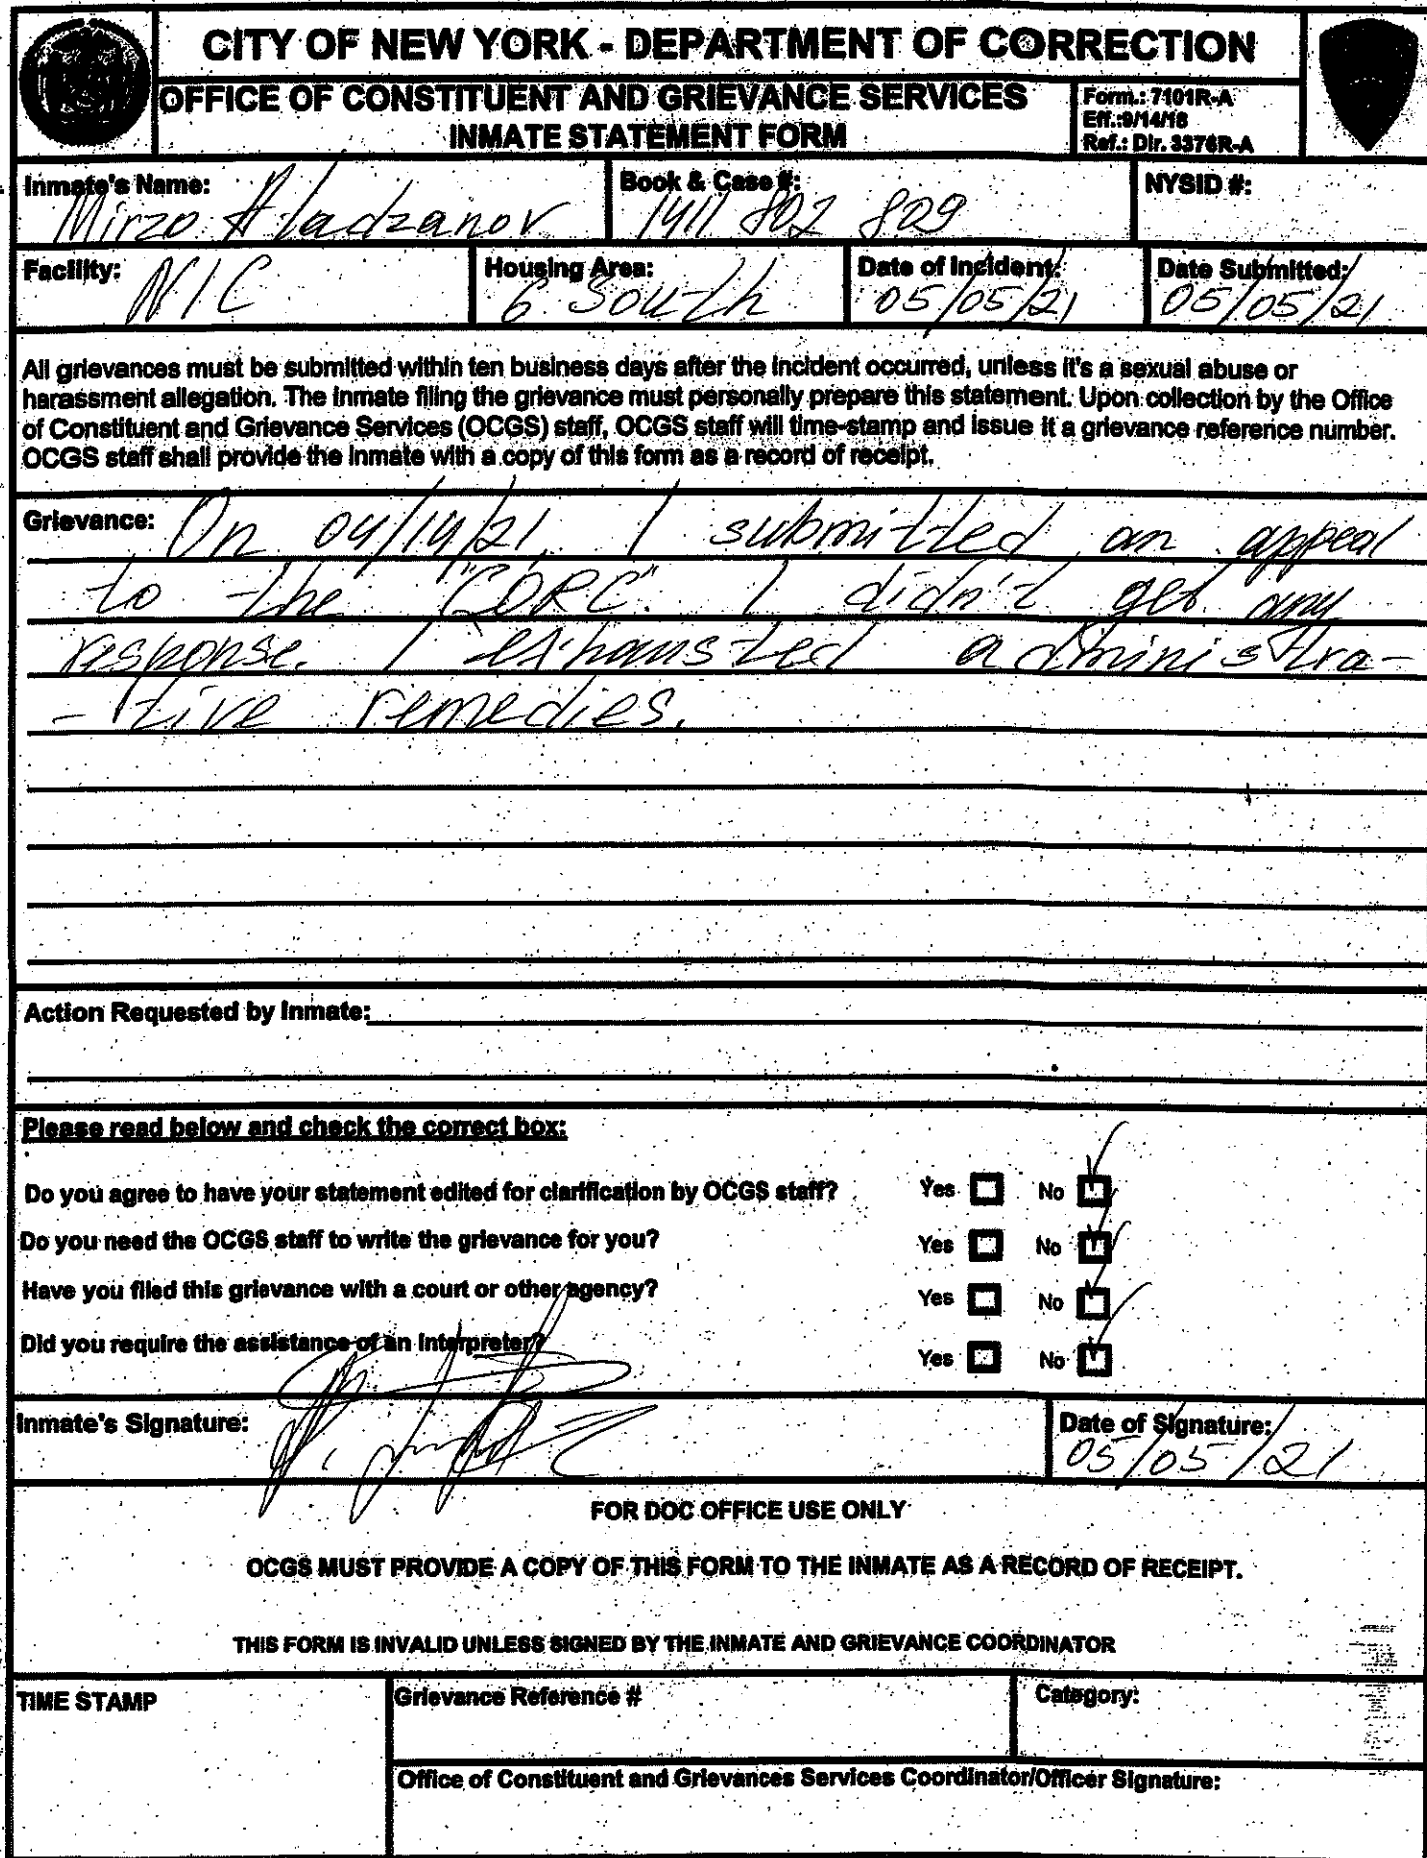 CITY OF NEW YORK - DEPARTMENT OF CORRECTION
OFFICE OF CONSTITUENT AND GRIEVANCE SERVICES
INMATE STATEMENT FORM
Form.: 7101R-A
Eff.:9/14/18
Ref.: Dir. 3376R-A
Inmate's Name:
Mirzo Atadzanov
Book & Case #:
1411 802 829
NYSID #:
Facility:
NIC
Housing Area:
6 South
Date of Incident:
05/05/21
Date Submitted:
05/05/21
All grievances must be submitted within ten business days after the incident occurred, unless it's a sexual abuse or
harassment allegation. The inmate filing the grievance must personally prepare this statement. Upon collection by the Office
of Constituent and Grievance Services (OCGS) staff, OCGS staff will time-stamp and issue it a grievance reference number.
OCGS staff shall provide the inmate with a copy of this form as a record of receipt.
Grievance: On 04/14/21 I submitted an appeal
to the "CORC". I didn't get any
response. I exhausted administra-
- tive remedies.
Action Requested by Inmate:
Please read below and check the correct box:
Do you agree to have your statement edited for clarification by OCGS staff? Yes No
Do you need the OCGS staff to write the grievance for you? Yes No
Have you filed this grievance with a court or other agency? Yes No
Did you require the assistance of an interpreter? Yes No
Inmate's Signature:
Date of Signature:
05/05/21
FOR DOC OFFICE USE ONLY
OCGS MUST PROVIDE A COPY OF THIS FORM TO THE INMATE AS A RECORD OF RECEIPT.
THIS FORM IS INVALID UNLESS SIGNED BY THE INMATE AND GRIEVANCE COORDINATOR
TIME STAMP
Grievance Reference #
Category:
Office of Constituent and Grievances Services Coordinator/Officer Signature: